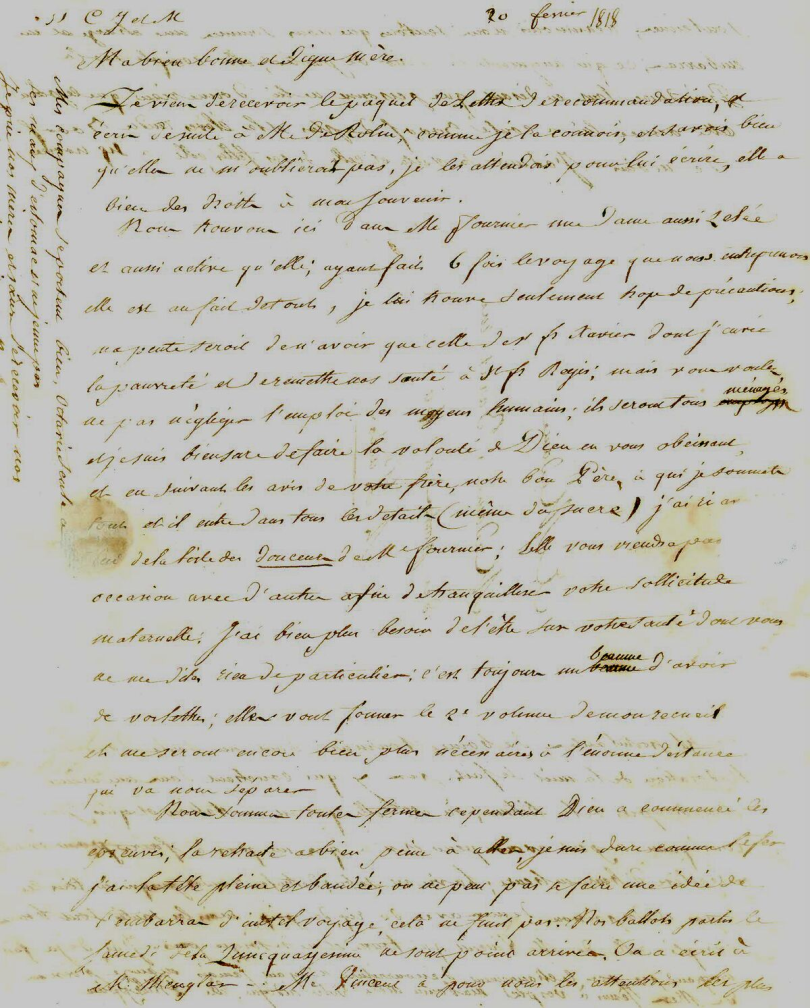 SS C J et M 20 fevrier 1818
Ma bien bonne et Digne mère.
Je viens de recevoir le paquet de Lettres de recommandation, et
écris de suite à Me de Rolin, comme je la connois, et savois bien
qu'elle ne m'oublierait pas, je les attendois pour lui écrire, elle a
bien des droits à mon souvenir.
Nous trouvons ici dans Me fournier une Dame aussi zelée
et aussi active qu'elle; ayant fait 6 fois le voyage que nous entreprenons
elle est au fait de tout, je lui trouve seulement trop de précautions,
ma pente seroit de n'avoir que celle de st fr Xavier dont j'envie
la pauvreté et de remettre nos santé à St fr Regis; mais vous voulez
ne pas négliger l'emploi des moyens humains; ils seront tous ménagés
et je suis bien sure de faire la volonté de Dieu en vous obéissant
et en suivant les avis de votre frère, notre bon Père, à qui je soumets
tout et il entre dans tous les détails (même du sucre) j'ai
de la liste des douceurs de Me fournier; Elle vous viendra par
occasion avec d'autres afin de tranquilliser votre sollicitude
maternelle. J'ai bien plus besoin de l'être sur votre santé dont vous
ne me dites rien de particulier; c'est toujours un beaume d'avoir
de vos lettres; elles vont former le 2e volume de mon recueil
et me seront encore bien plus nécessaires à l'énorme distance
qui va nous séparer
Nous sommes toutes fermes cependant Dieu a commencé les
épreuves; la retraite a bien peine à aller je suis dure comme le fer
j'ai la tête pleine et bandée, on ne peut pas se faire une idée de
l'embarras d'un tel voyage, cela ne finit pas. Nos ballots partis le
samedi de la Quinquagesime ne sont point arrivés. On a écrit à
Me Vincent a pour nous les attentions les plus
Mes compagnes se portent bien, Octavie seule a
ses maux d'estomac et ne jeune pas